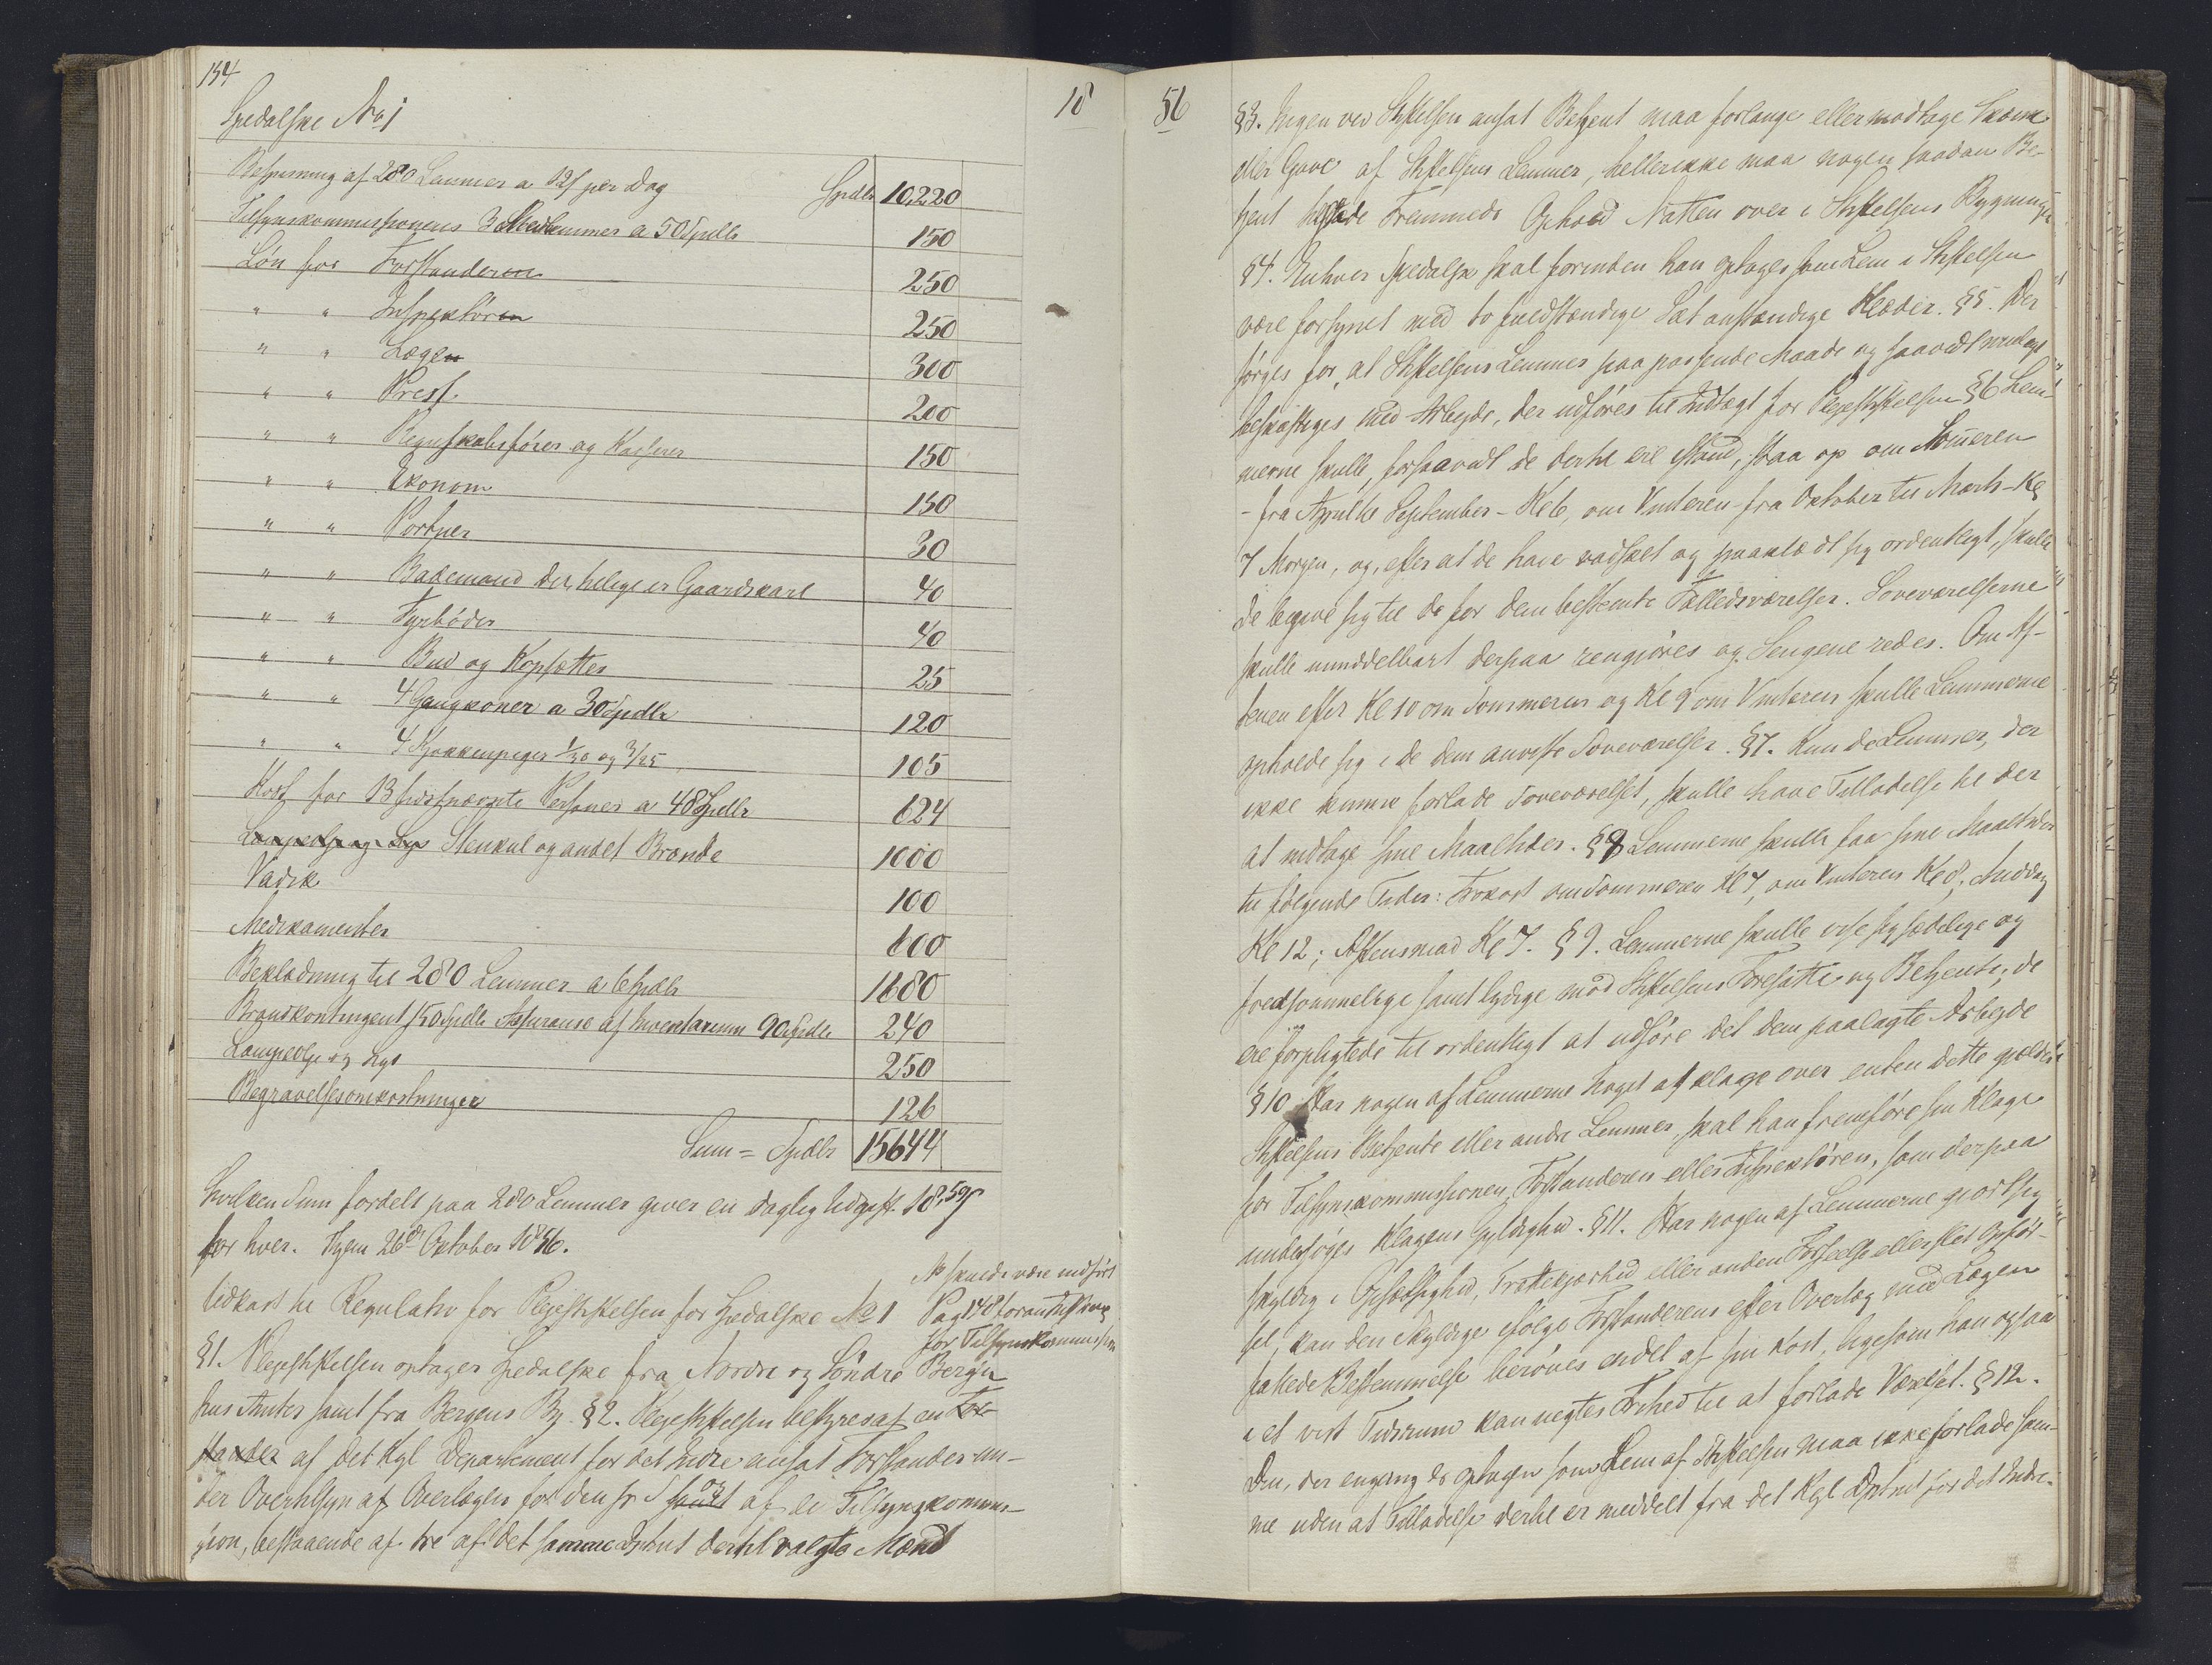 154
18
Spedalske No 1
Bespisning af 280 Lemmer a 12 s per Dag Spdlr 10,220
Tilsynskommissionens 3 Medlemmer a 50 Spdlr 150
Løn for Forstanderen 250
" " Inspektøren 250
" " Lægen 300
" " Præst 200
" " Regnskabsfører og Kasserer 150
" " Økonom 150
" " Portner 30
" " Bademand der tillige er Gaardskarl 40
" " Fyrbøder 40
" " Bud og Kopsætter 25
" " 4 Gangkoner a 30 Spdlr 120
" " 4 Kjøkkenpiger 1/30 og 3/25 105
Kost for 13 sidstnævnte Personer a 48 Spdlr 624
Lampeolje og Lys Stenkul og andet Brænde 1000
Vadsk 100
Medikamenter 600
Beklædning til 280 Lemmer a 6 Spdlr 1680
Brandkontingent 150 Spdlr Assurance af Inventarium 90 Spdlr 240
Lampeolje og Lys 250
Begravelsesomkostninger 126
Sum = Spdlr 15644
hvilken Sum fordelt paa 280 Lemmer giver en daglig Udgift 18,59 s
for hver. Bergen 26de Oktober 1856.
NB skulde være indført
Udkast til Regulativ for Plejestiftelsen for Spedalske No 1 Pag 148 foran
for Tilsynskommission
§1. Plejestiftelsen optager Spedalske fra Nordre og Søndre Bergen
hus Amter samt fra Bergens By. §2. Plejestiftelsen bestyres af en For-
stander af det Kgl Departement for det Indre ansat Forstander un-
der Overtilsyn af Overlægen for den sp S samt og af en Tilsynskommis-
sion, bestaaende af tre af det samme Dptmt dertil valgte Mænd
56
§3. Ingen ved Stiftelsen ansat Betjent maa forlange eller modtage Skænk
eller Gave af Stiftelsens Lemmer, hellerikke maa nogen saadan Be-
tjent tilstede Fremmede Ophold Natten over i Stiftelsens Bygninger
§4. Enhver Spedalsk skal forinden han optages som Lem i Stiftelsen
være forsynet med to fuldstændige Sæt anstændige Klæder. §5. Der
sørges for, at Stiftelsens Lemmer paa passende Maade og saavidt muligt
beskæftiges med Arbejde, der udføres til Indtægt for Plejestiftelsen §6 Lem-
merne skulle, forsaavidt de dertil ere istand, staa op om Sommeren
- fra April til September - Kl 6, om Vinteren - fra Oktober til Marts - Kl
7 Morgen, og, efter at de have vadsket og paaklædt sig ordentligt, skulle
de begive sig til de for dem bestemte Fælledsværelser. Soveværelserne
skulle umiddelbart derpaa rengjøres og Sengene redes. Om Af-
tenen efter Kl 10 om Sommeren og Kl 9 om Vinteren skulle Lemmerne
opholde sig i de dem anviste Soveværelser. §7. Kun de Lemmer, der
ikke kunne forlade Soveværelset, skulle have Tilladelse til der
at indtage sine Maaltider. §8 Lemmerne skulle faa sine Maaltider
til følgende Tider: Frokost om Sommeren Kl 7, om Vinteren Kl 8; Middag
Kl 12; Aftensmad Kl 7. §9. Lemmerne skulle vise sig sædelige og
fredsommelige samt lydige mod Stiftelsens Foresatte og Betjente; de
ere forpligtede til ordentligt at udføre det dem paalagte Arbejde
§10 Har nogen af Lemmerne noget at klage over enten dette gjælder
Stiftelsens Betjente eller andre Lemmer, skal han fremføre sin Klage
for Tilsynskommissionen, Forstanderen eller Inspektøren, som derpaa
undersøger Klagens Gyldighed. §11. Har nogen af Lemmerne gjort sig
skyldig i Opsætsighed, Trættekjærhed eller anden Forseelse eller slet Opfør-
sel, kan den Skyldige ifølge Forstanderens efter Overlæg med Lægen
fattede Bestemmelse berøves endel af sin Kost, ligesom han ogsaa
i et vist Tidsrum kan negtes Frihed til at forlade Værelset. §12.
Den, der engang er optagen som Lem af Stiftelsen maa ikke forlade sam-
me uden at Tilladelse dertil er meddelt fra det Kgl Dptmt for det Indre.